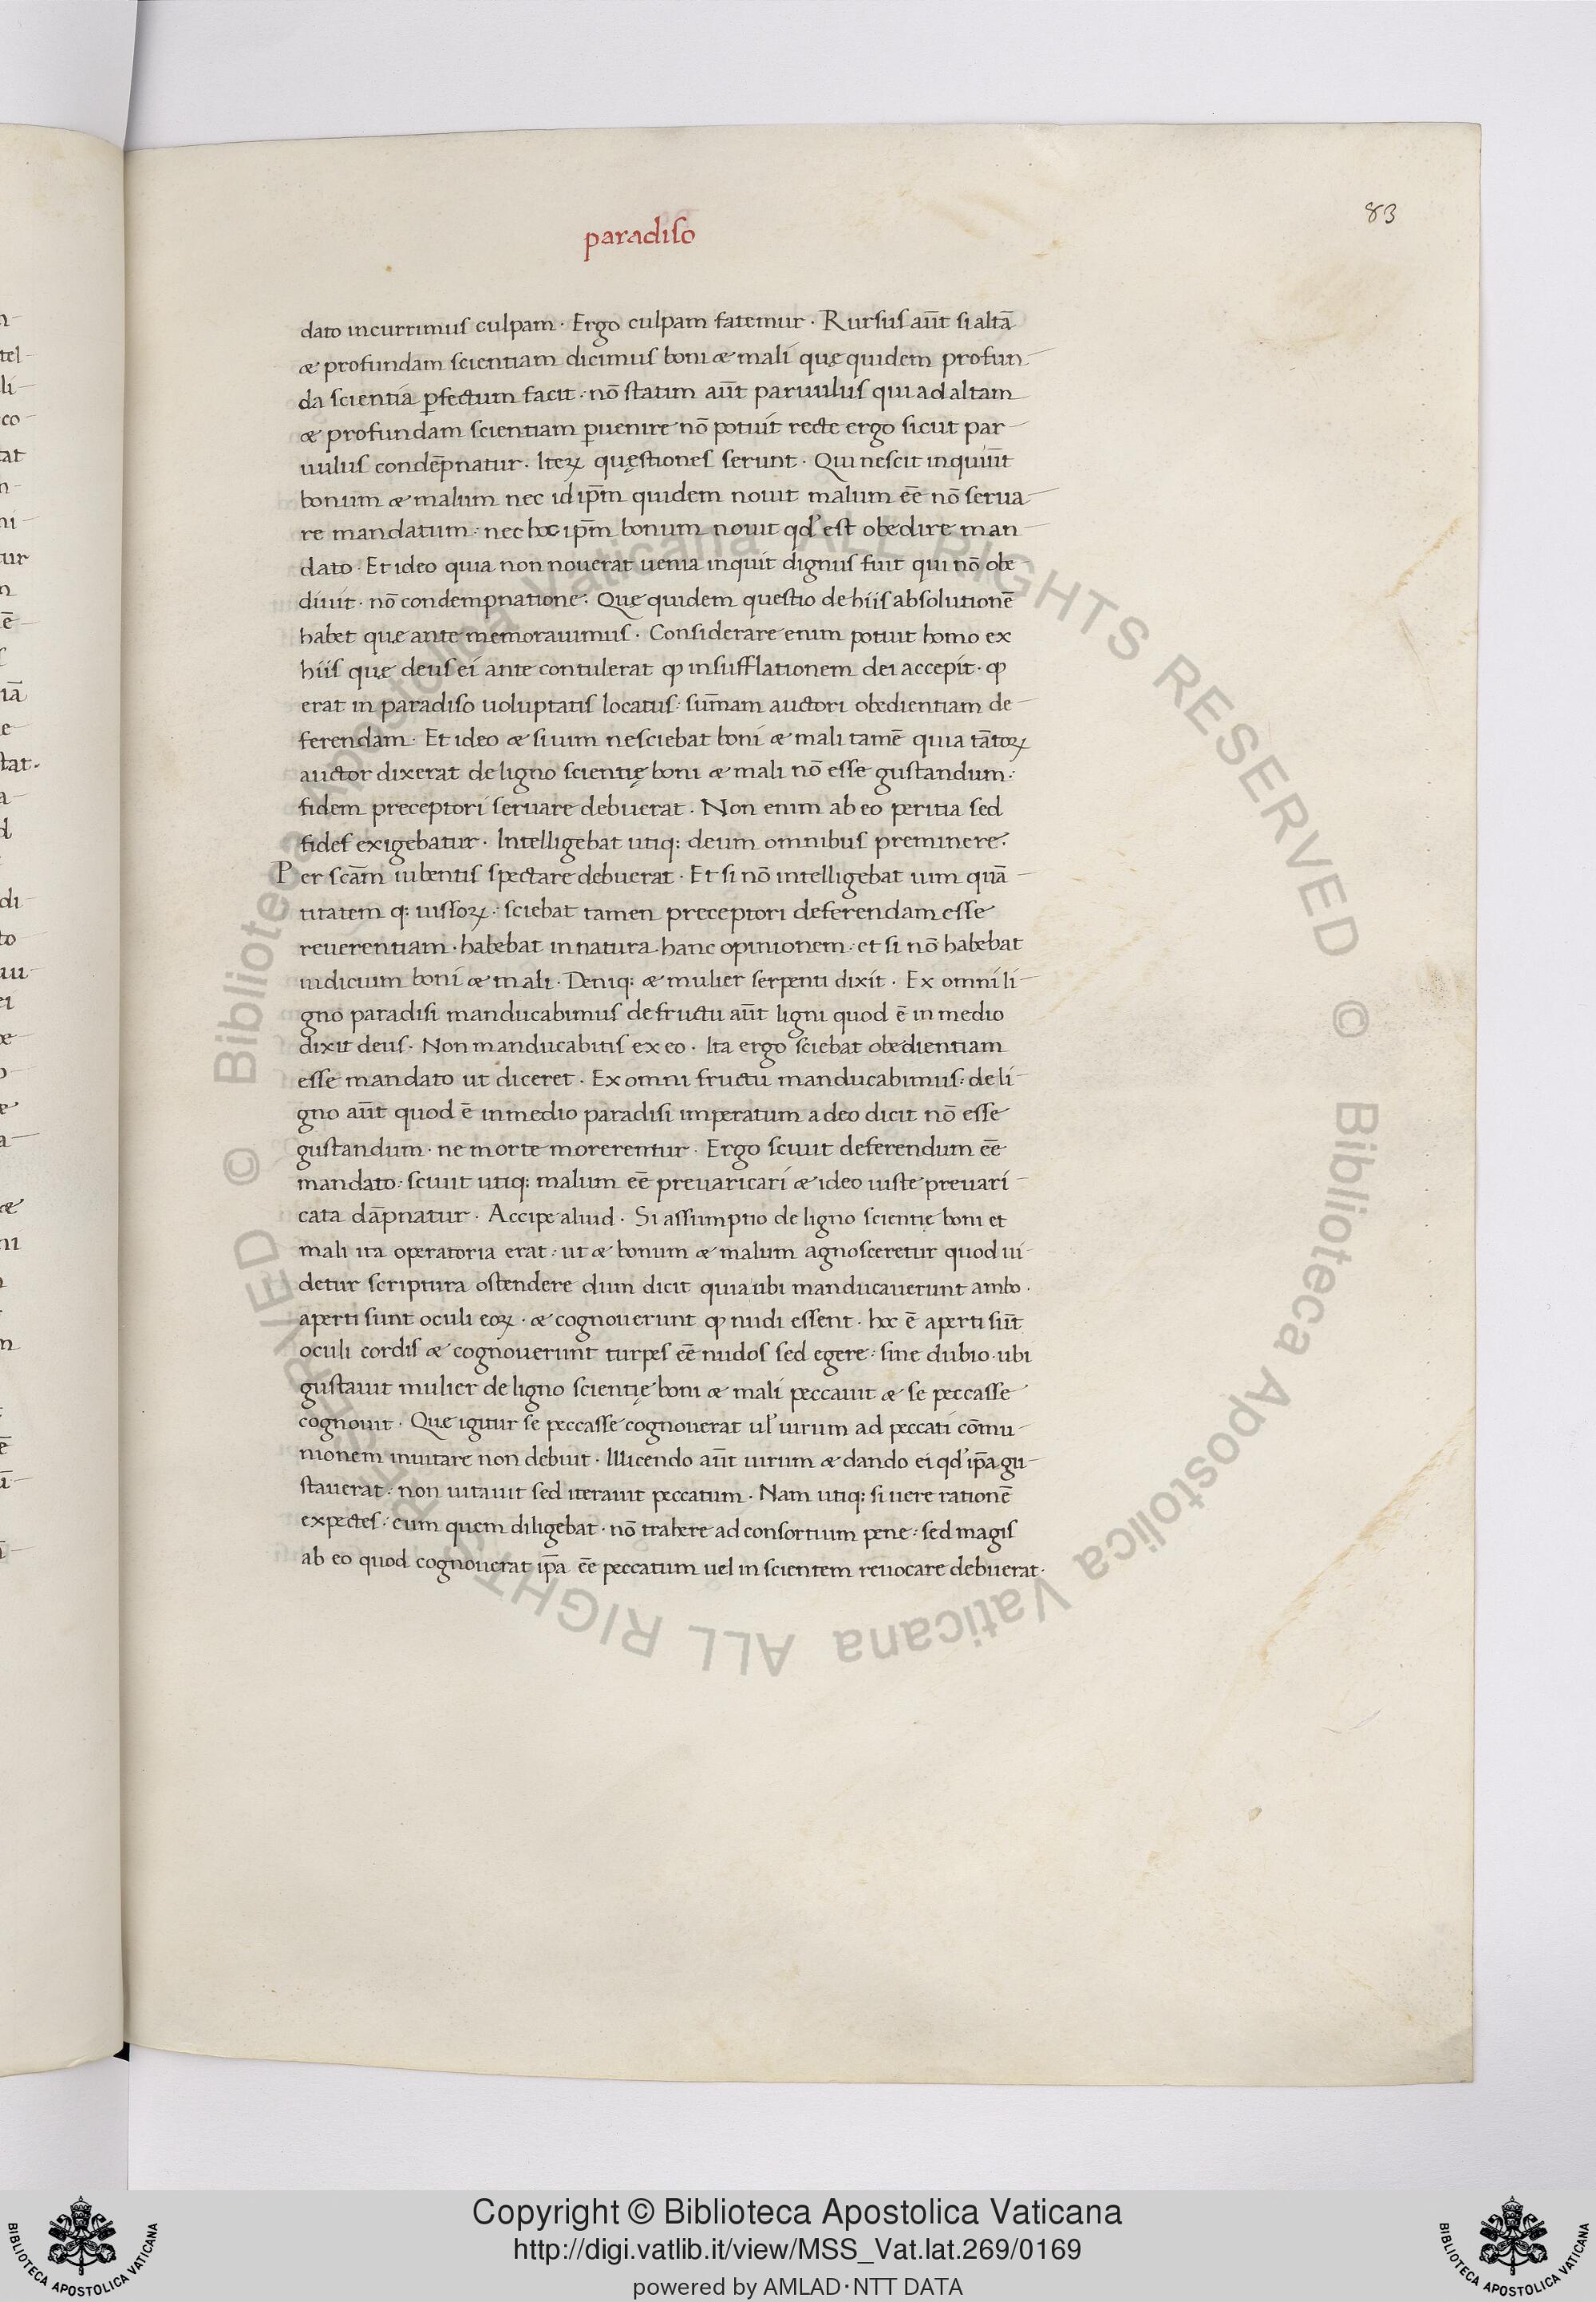 83
paradiso
dato incurrimus culpam · Ergo culpam fatemur · Rursus aūt si altā
& profundam scientiam dicimus boni & mali quę quidem profun-
da scientia ꝑfectum facit · nō statim aūt paruulus qui ad altam
& profundam scientiam ꝑuenire nō potuit recte ergo sicut par-
uulus condēpnatur · Iteꝝ quęstiones serunt · Qui nescit inquiūt
bonum & malum nec id ip̄m quidem nouit malum eē nō serua-
re mandatum · nec hoc ip̄m bonum nouit qd' est obedire man-
dato · Et ideo quia non nouerat uenia inquit dignus fuit qui nō obe
diuit · nō condempnatione · Quę quidem questio de hiis absolutionē
habet que ante memorauimus · Considerare enim potuit homo ex
hiis quę deus ei ante contulerat ꝙ insufflationem dei accepit · ꝙ
erat in paradiso uoluptatis locatus · sum̄am auctori obedientiam de-
ferendam · Et ideo & si uim nesciebat boni & mali tamē quia tātoꝝ
auctor dixerat de ligno scientię boni & mali nō esse gustandum ·
fidem preceptori seruare debuerat · Non enim ab eo peritia sed
fides exigebatur · Intelligebat utiq: deum omnibus preminere ·
Per scām iubentis spectare debuerat · Et si nō intelligebat uim quā-
titatem q: iussoꝝ · sciebat tamen preceptori deferendam esse
reuerentiam · habebat in natura hanc opinionem · et si nō habebat
iudicium boni & mali · Deniq: & mulier serpenti dixit · Ex omni li-
gno paradisi manducabimus de fructu aūt ligni quod ē in medio
dixit deus · Non manducabitis ex eo · Ita ergo sciebat obedientiam
esse mandato ut diceret · Ex omni fructu manducabimus : de li-
gno aūt quod ē in medio paradisi imperatum a deo dicit nō esse
gustandum · ne morte morerentur · Ergo sciuit deferendum eē
mandato · sciuit utiq: malum eē preuaricari & ideo iuste preuari-
cata dāpnatur · Accipe aliud · Si assumptio de ligno scientię boni et
mali ita operatoria erat · ut & bonum & malum agnosceretur quod ui-
detur scriptura ostendere dum dicit quia ubi manducauerunt ambo ·
aperti sunt oculi eoꝝ · & cognouerunt ꝙ nudi essent · hoc ē aperti sūt
oculi cordis & cognouerunt turpes eē nudos sed egere · sine dubio · ubi
gustauit mulier de ligno scientię boni & mali peccauit & se peccasse
cognouit · Que igitur se peccasse cognouerat ul' uirum ad peccati cōmu-
nionem inuitare non debuit · Illicendo aūt uirum & dando ei qd' ip̄a gu-
stauerat · non uitauit sed iterauit peccatum · Nam utiq: si uere rationē
expectes · eum quem diligebat · nō trahere ad consortium pene · sed magis
ab eo quod cognouerat ip̄a eē peccatum uel in scientem reuocare debuerat ·
© Biblioteca Apostolica Vaticana ALL RIGHTS RESERVED © Biblioteca Apostolica Vaticana ALL RIGHTS RESERVED
Copyright © Biblioteca Apostolica Vaticana
http://digi.vatlib.it/view/MSS_Vat.lat.269/0169
powered by AMLAD·NTT DATA
BIBLIOTECA APOSTOLICA VATICANA
BIBLIOTECA APOSTOLICA VATICANA